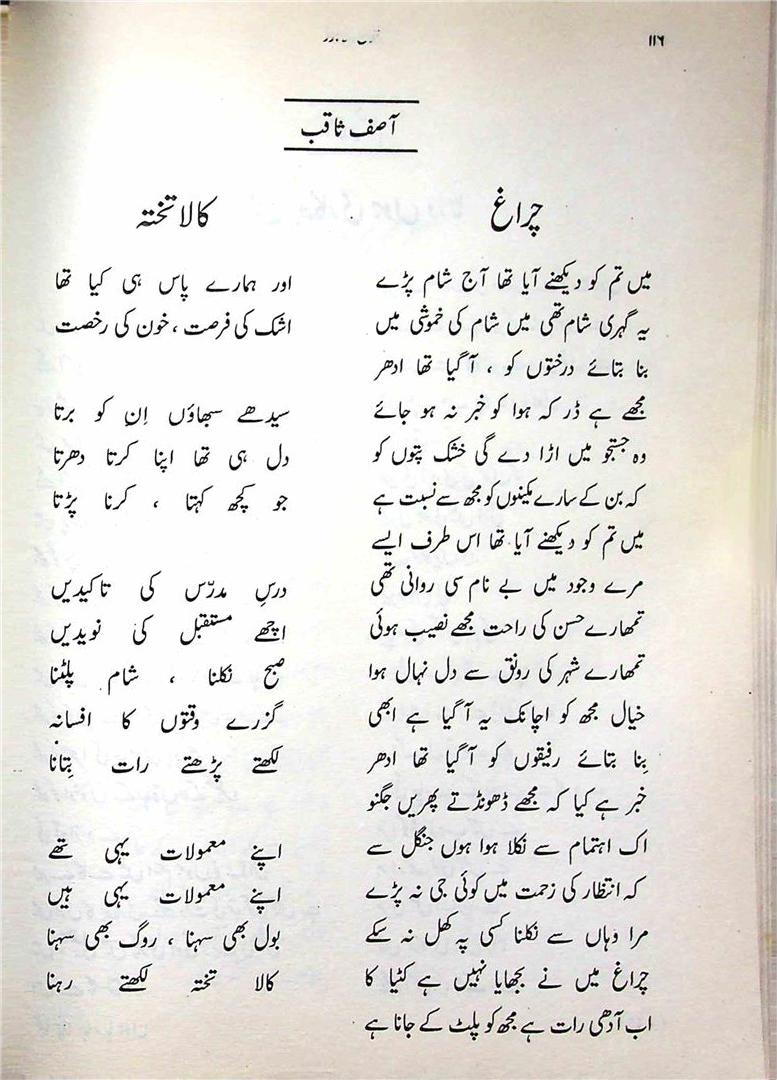 ۱۱۶
آصف ثاقب
چراغ
میں تم کو دیکھنے آیا تھا آج شام پڑے
یہ گہری شام تھی میں شام کی خموشی میں
بنا بتائے درختوں کو ، آ گیا تھا ادھر
مجھے ہے ڈر کہ ہوا کو خبر نہ ہو جائے
وہ جستجو میں اڑا دے گی خشک پتوں کو
کہ بن کے سارے مکینوں کو مجھ سے نسبت ہے
میں تم کو دیکھنے آیا تھا اس طرف ایسے
مرے وجود میں بے نام سی روانی تھی
تمھارے حسن کی راحت مجھے نصیب ہوئی
تمھارے شہر کی رونق سے دل نہال ہوا
خیال مجھ کو اچانک یہ آ گیا ہے ابھی
بِنا بتائے رفیقوں کو آ گیا تھا ادھر
خبر ہے کیا کہ مجھے ڈھونڈتے پھریں جگنو
اک اہتمام سے نکلا ہوا ہوں جنگل سے
کہ انتظار کی زحمت میں کوئی جی نہ پڑے
مرا وہاں سے نکلنا کسی پہ کھل نہ سکے
چراغ میں نے بجھایا نہیں ہے کٹیا کا
اب آدھی رات ہے مجھ کو پلٹ کے جانا ہے
کالا تختہ
اور ہمارے پاس ہی کیا تھا
اشک کی فرصت ، خون کی رخصت
سیدھے سبھاؤں اِن کو برتا
دل ہی تھا اپنا کرتا دھرتا
جو کچھ کہتا ، کرنا پڑتا
درسِ مدرّس کی تاکیدیں
اچھے مستقبل کی نویدیں
صبح نکلنا ، شام پلٹنا
گزرے وقتوں کا افسانہ
لکھتے پڑھتے رات بِتانا
اپنے معمولات یہی تھے
اپنے معمولات یہی ہیں
بول بھی سہنا ، روگ بھی سہنا
کالا تختہ لکھتے رہنا